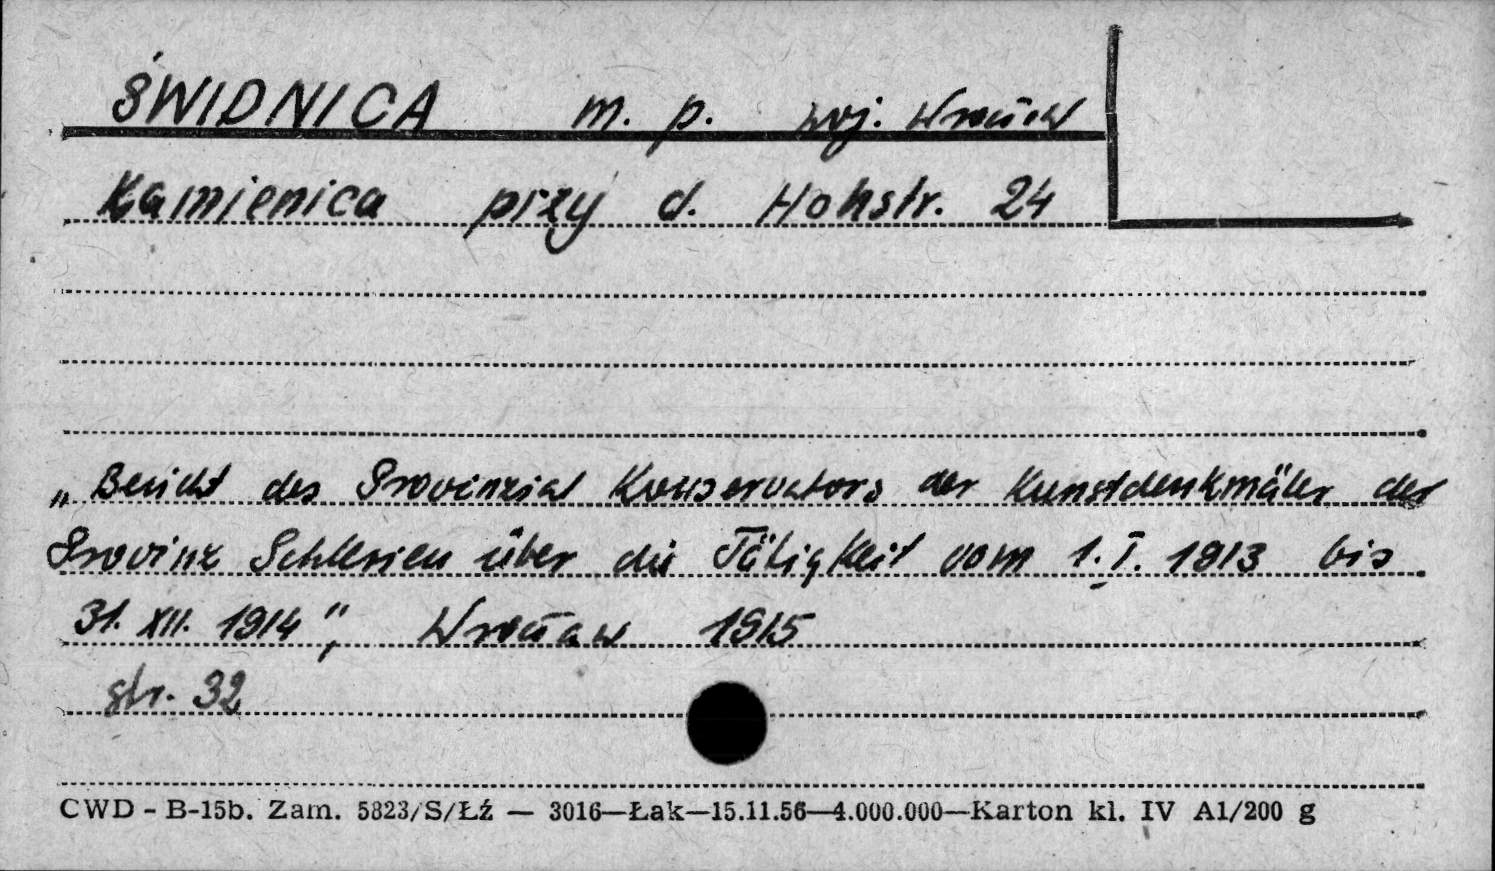 ŚWIDNICA m. p. woj. Wrocław
Kamienica przy d. Hohstr. 24
„Bericht des Provinzial Konservators der Kunstdenkmäler der
Provinz Schlesien über die Tätigkeit vom 1. I. 1913 bis
31. XII. 1914", Wrocław 1915
str. 32
CWD - B-15b. Zam. 5823/S/Łź — 3016—Łak—15.11.56—4.000.000—Karton kl. IV A1/200 g